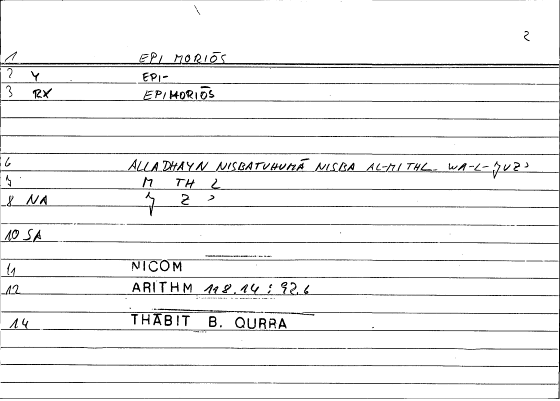 2
1 EPI MORIŌS
2 Y EPI-
3 RX EPIMORIŌS
6 ALLADHAYN NISBATUHUMĀ NISBA AL-MITHL WA-L-ǦUZʾ
7 M TH L
8 NA Ǧ Z ʾ
10 SA
11 NICOM
12 ARITHM 118.14 : 92.6
14 THĀBIT B. QURRA